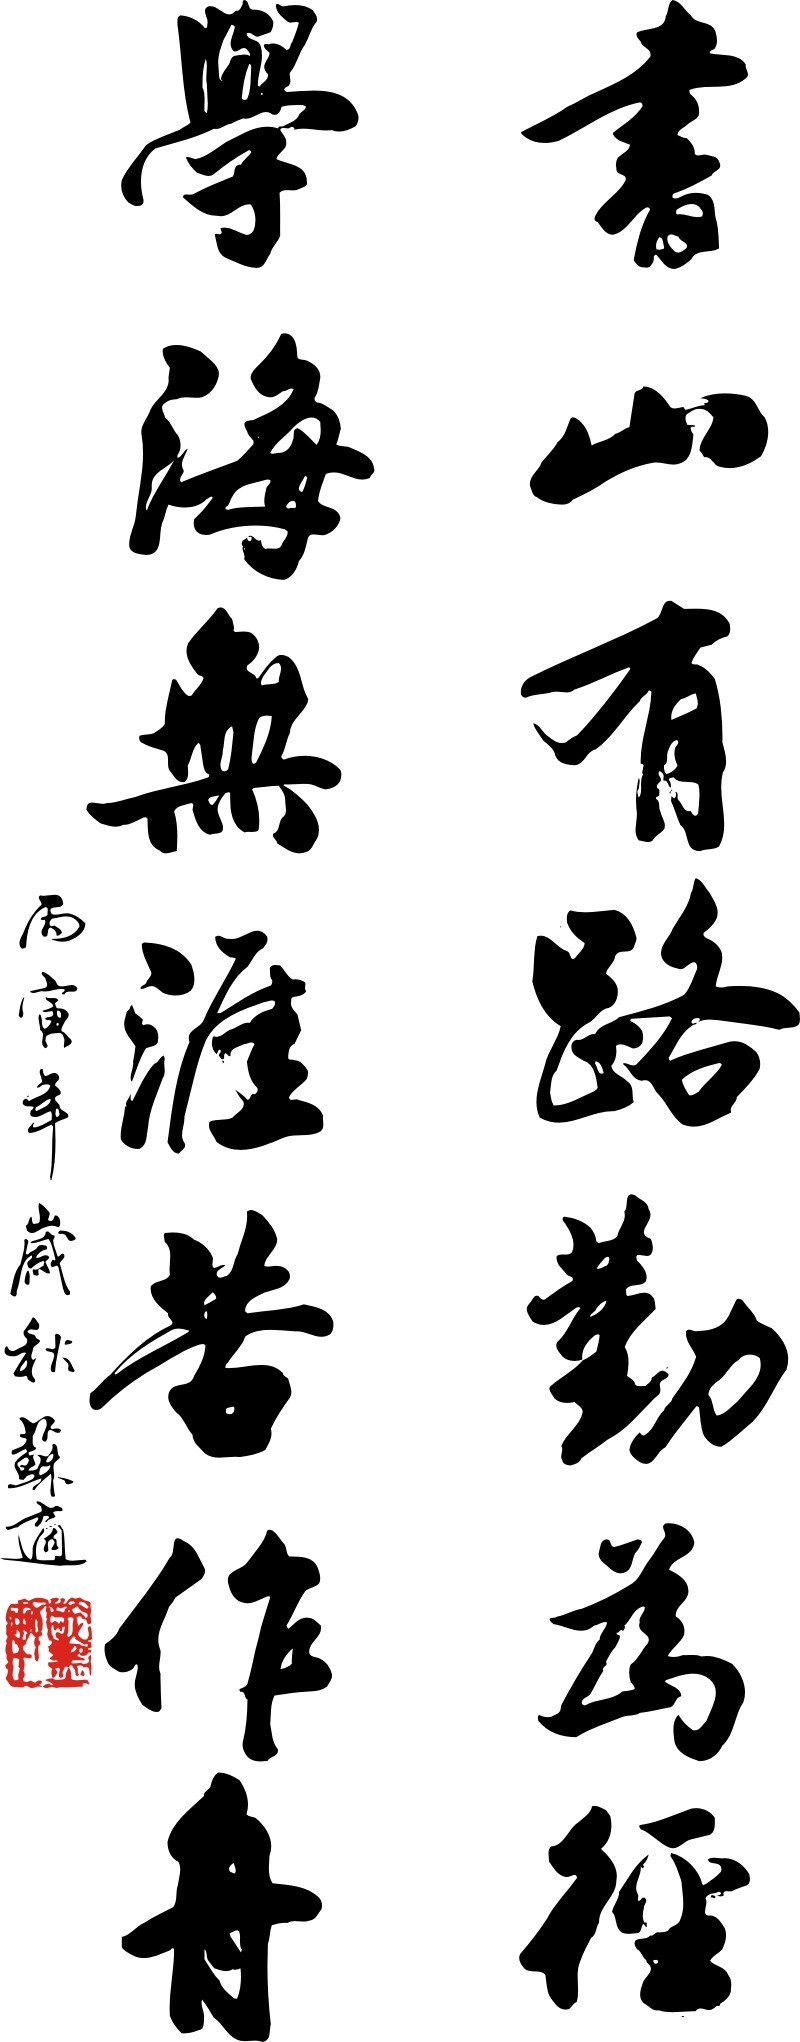 書山有路勤為徑
學海無涯苦作舟
丙寅年歲秋蘇適